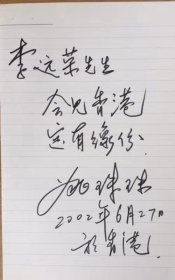 李远荣先生
会见香港
定有缘份
姚珠珠
2002年6月27日
於香港